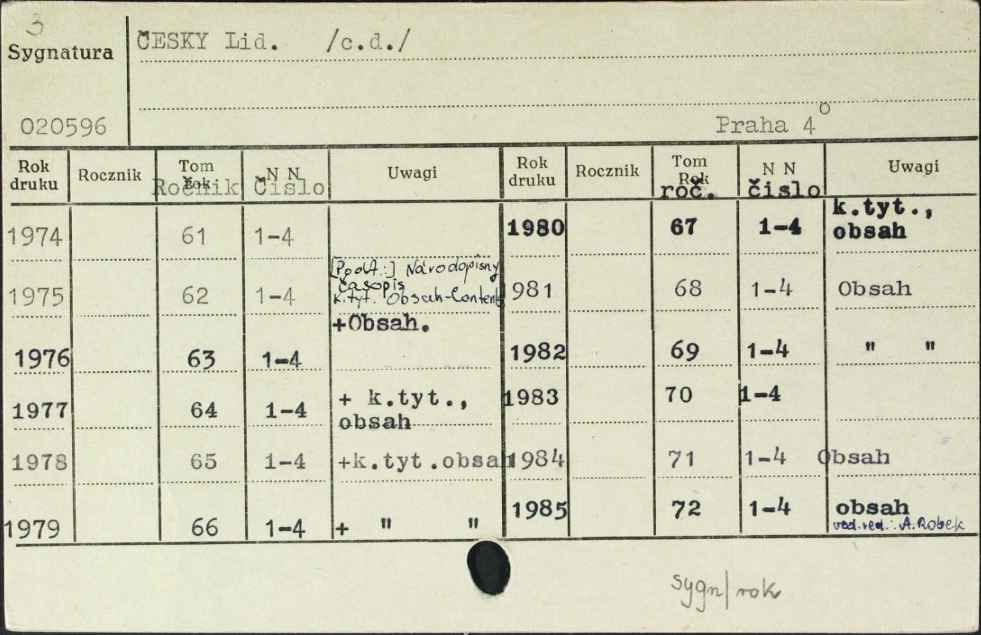 3
Sygnatura
ČESKY Lid. /c.d./
020596
Praha 4°
Rok druku Rocznik Tom Rok Ročnik N N Čislo Uwagi Rok druku Rocznik Tom Rok roč. N N čislo Uwagi
1974 61 1-4
1975 62 1-4 [Podt.:] Národopisny
časopis
k.tyt. Obsah-Content
+Obsah.
1976 63 1-4
1977 64 1-4 + k.tyt.,
obsah
1978 65 1-4 +k.tyt.obsah
1979 66 1-4 + " "
1980 67 1-4 k.tyt.,
obsah
1981 68 1-4 Obsah
1982 69 1-4 " "
1983 70 1-4
1984 71 1-4 Obsah
1985 72 1-4 obsah
ved.red.: A. Robek
sygn/rok